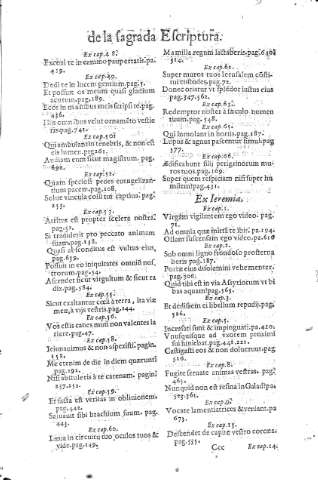 de la sagrada Escriptura.
Ex cap. 48.
Excoxi te in camino paupertatis. pa.
429.
Ex cap. 49.
Dedi te in lucem gentium. pag. 5.
Et posuit os meum quasi gladium
acutum. pag. 189.
Ecce in manibus meis scripsi te. pag.
436.
His omnibus velut ornamento vestie
ris. pag. 741.
Ex cap. 50.
Qui ambulant in tenebris, & non est
eis lumen. pag.
Audiam eum sicut magistrum. pag.
Ex cap. 52.
Quam speciosi pedes euangelizan-
tium pacem. pag. 108.
Solue vincula colli tui captiua. pag.
Ex cap. 53.
Attritus est propter scelera nostra.
Si tradiderit pro peccato animam
suam. pag.
Quasi absconditus est vultus eius.
pag. 659.
Posuit in eo iniquitates omnium nos-
trorum. pag. 54.
Ascendet sicut virgultum & sicut ra
dix. pag. 584.
Ex cap. 55.
Sicut exaltantur coeli à terra, ita viæ
meæ, à vijs vestris. pag. 144.
Ex cap. 56.
Vos estis canes muti non valentes la
trare. pag. 47.
Ex cap. 58.
Ieiunauimus & non aspexisti. pagin.
158.
Me etenim de die in diem quærunt.
pag. 191.
Nisi abstuleris à te catenam. pagin.
257. 252.
Ex cap. 59.
Et facta est veritas in obliuionem.
pag. 442.
Saluauit sibi brachium suum. pag.
443.
Ex cap. 60.
Leua in circuitu tuo oculos tuos &
vide. pag. 149.
Mamilla regum lactaberis. pag. 630.
514.
Ex cap. 62.
Super muros tuos Ierusalem consti-
tui custodes. pag. 72.
Donec oriatur vt splendor iustus eius
pag. 547. 562.
Ex cap. 63.
Redemptor noster à sæculo nomen
tuum. pag. 548.
Ex cap. 65.
Qui immolant in hortis. pag. 187.
Lupus & agnus pascentur simul. pag.
177.
Ex cap. 66.
Ædificabunt filij peregrinorum mu-
ros tuos. pag. 169.
Super quem respiciam nisi super hu
milem. pag. 431.
Ex Ieremia.
Ex cap. 1.
Virgam vigilantem ego video. pag.
71.
Ad omnia quæ mitta te ibis. p. 194.
Ollam succensam ego video. pa. 610
Ex cap. 2.
Sub omni ligno frondoso prosterna
beris. pag. 187.
Portæ eius desolamini vehementer.
pag. 306.
Quid tibi est in via Assyriorum vt bi
bas aquam. pag. 365.
Ex cap. 3.
Et dedissem ei libellum repudij. pag.
526.
Ex cap. 5.
Incrassati sunt & impinguati. pa. 420.
Vnusquisque ad vxorem proximi
sui hinniebat. pag. 448. 221.
Castigasti eos & non doluerunt. pag.
510.
Ex cap. 8.
Fugite seruate animas vestras. pag.
465.
Nunquid non est resina in Galaad. pa
523. pag. 361.
Ex cap. 9.
Vocate lamentatrices & veniant. pa
673.
Ex cap. 13.
Descendet de capite vestro corona.
pag. 551.
Ccc
Ex cap. 14.